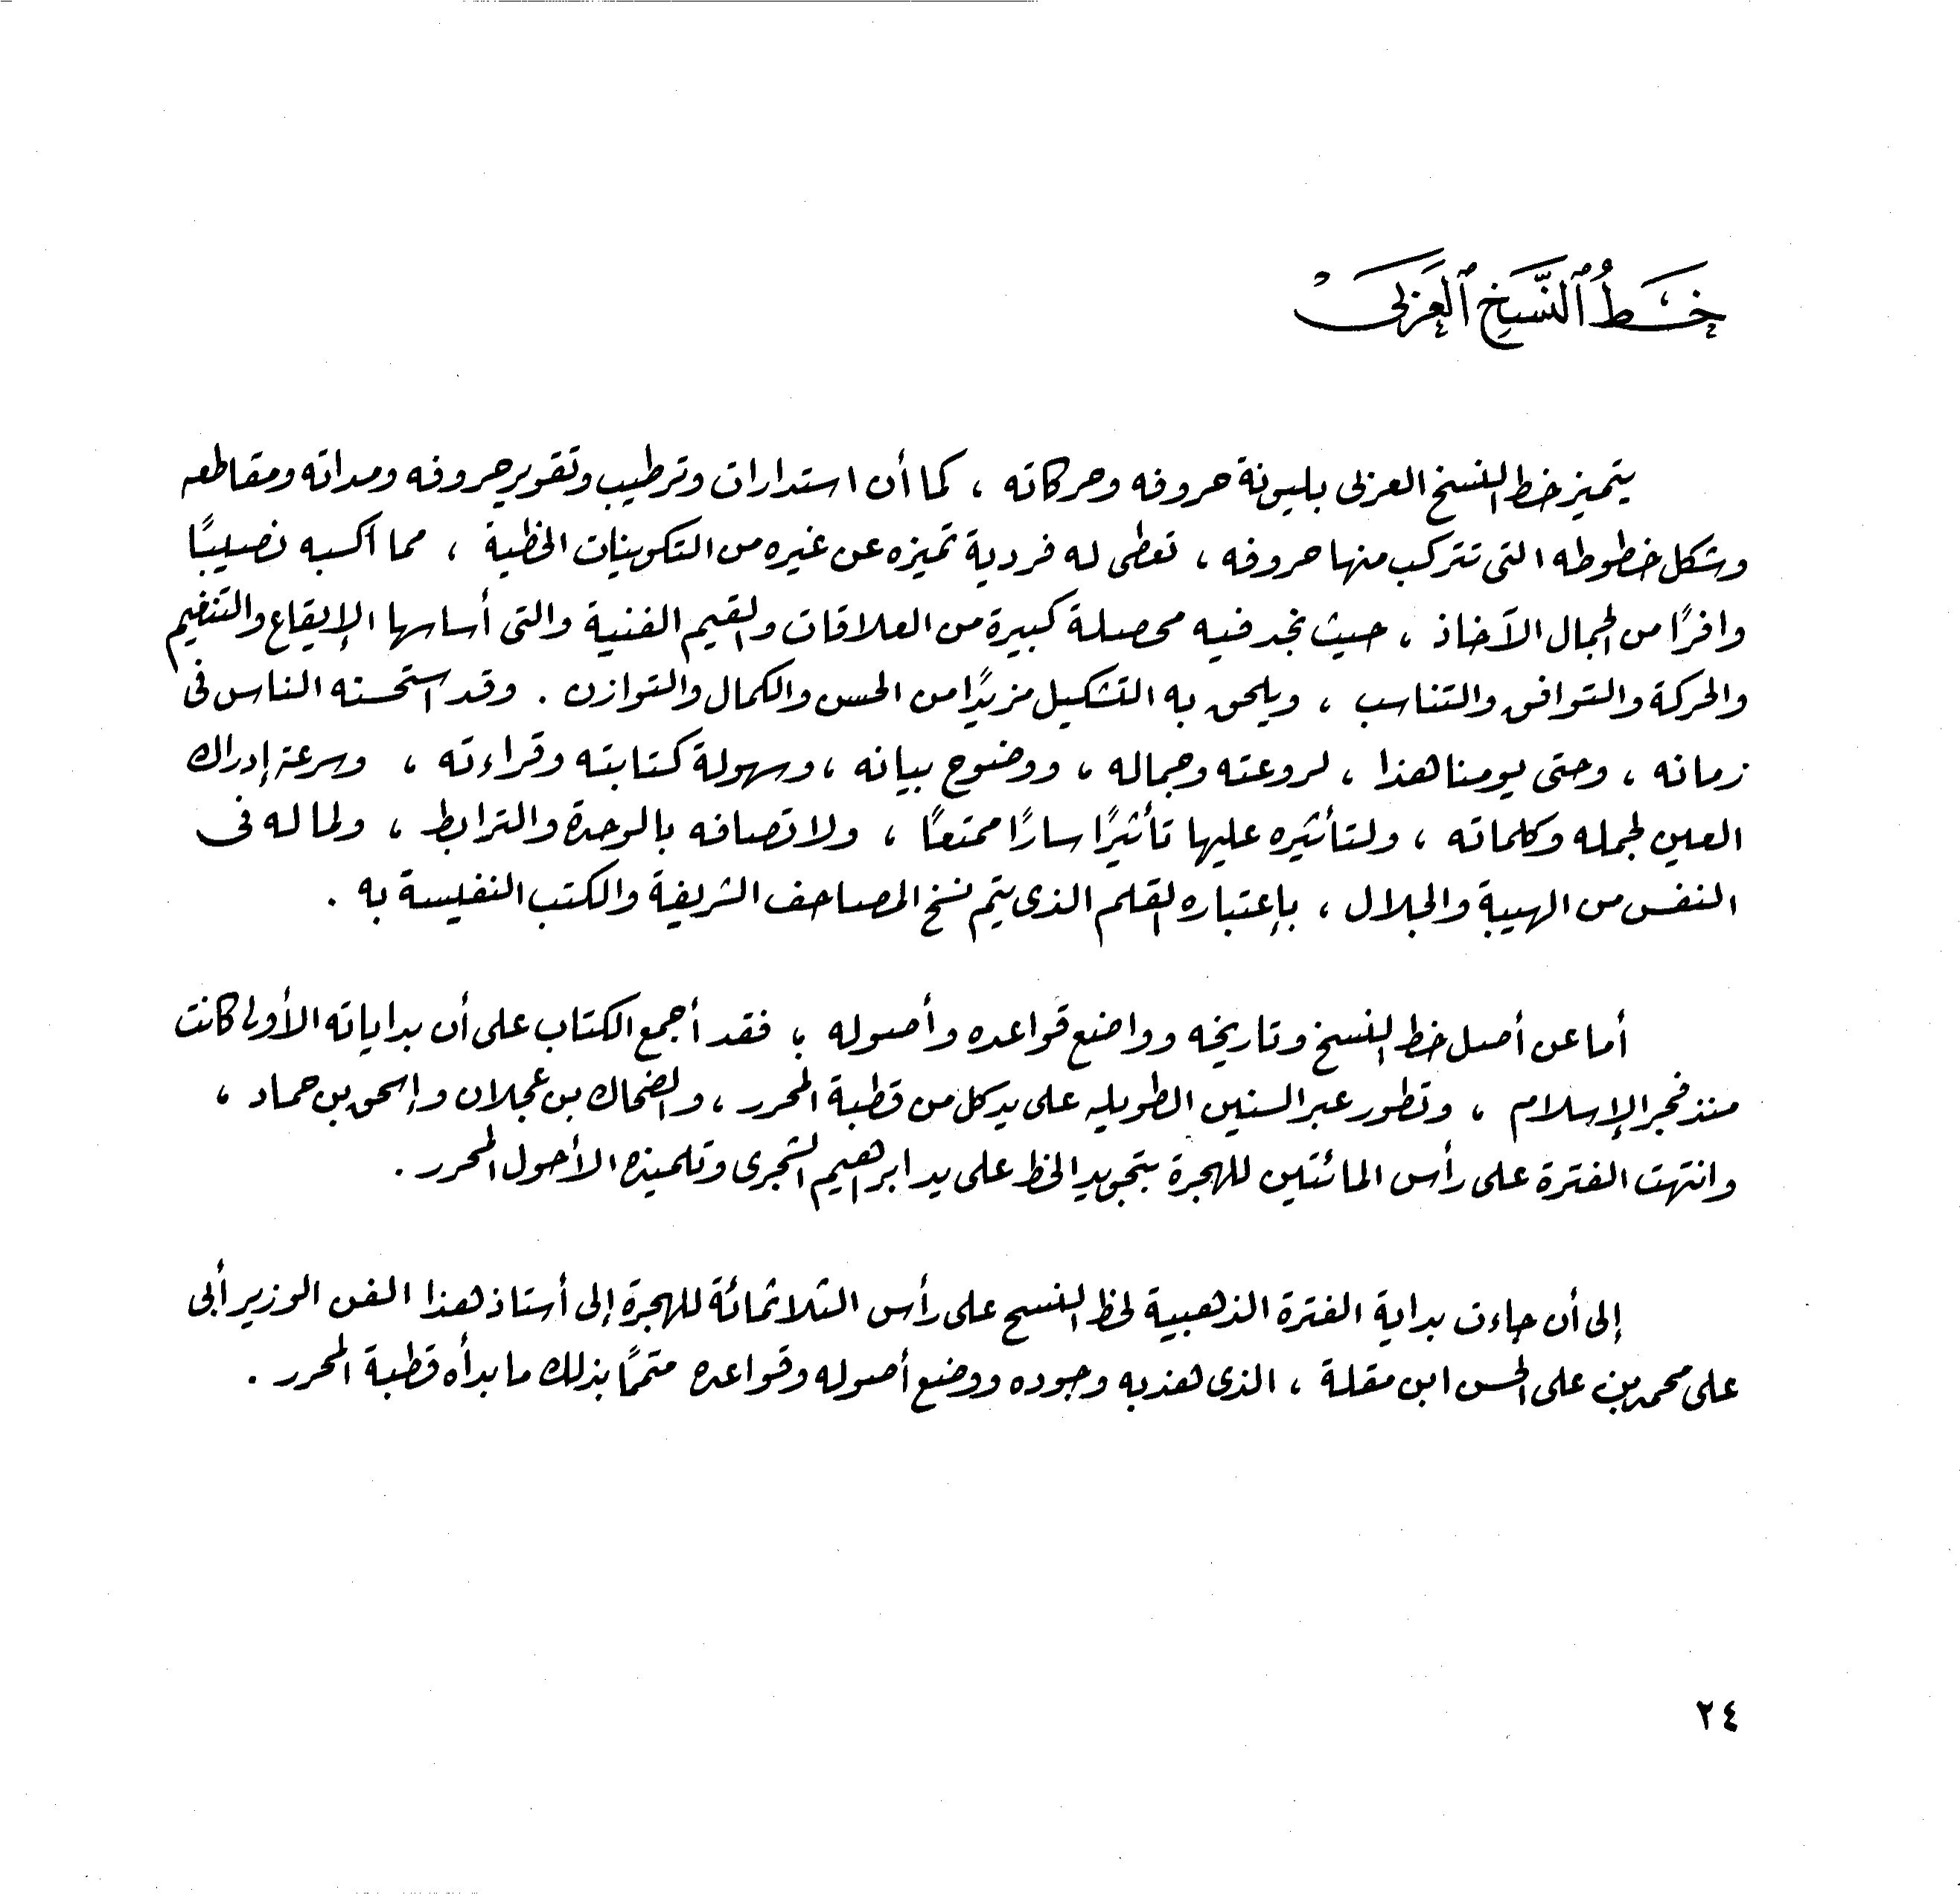 خَطُّ ٱلنَّسْخِ ٱلْعَرَبِى
يتميز خط النسخ العربى بليونة حروفه وحركاته ، كما أن استدارات وترطيب وتقوير حروفه ومداته ومقاطعه
وشكل خطوطه التى تتركب منها حروفه ، تعطى له فردية تميزه عن غيره من التكوينات الخطية ، مما أكسبه نصيبًا
وافرًا من الجمال الآخاذ ، حيث نجد فيه محصلة كبيرة من العلاقات والقيم الفنية والتى أساسها الإيقاع والتنغيم
والحركة والتوافق والتناسب ، ويلحق به التشكيل مزيدًا من الحسن والكمال والتوازن . وقد استحسنه الناس فى
زمانه ، وحتى يومنا هذا ، لروعته وجماله ، ووضوح بيانه ، وسهولة كتابته وقراءته ، وسرعة إدراك
العين لجمله وكلماته ، ولتأثيره عليها تأثيرًا سارًا ممتعًا ، ولاتصافه بالوحدة والترابط ، ولما له فى
النفس من الهيبة والجلال ، بإعتباره القلم الذى يتم نسخ المصاحف الشريفة والكتب النفيسة به .
أما عن أصل خط النسخ وتاريخه وواضع قواعده وأصوله ؛ فقد أجمع الكتاب على أن بداياته الأولى كانت
منذ فجر الإسلام ، وتطور عبر السنين الطويله على يد كل من قطبة المحرر ، والضحاك بن عجلان وإسحق بن حماد ،
وانتهت الفترة على رأس المائتين للهجرة بتجويد الخط على يد ابراهيم الشجرى وتلميذه الأحول المحرر .
إلى أن جاءت بداية الفترة الذهبية لخط النسخ على رأس الثلاثمائة للهجرة إلى أستاذ هذا الفن الوزير أبى
على محمد بن على الحسن ابن مقلة ، الذى هذبه وجوده ووضع أصوله وقواعده متممًا بذلك ما بدأه قطبة المحرر .
٢٤